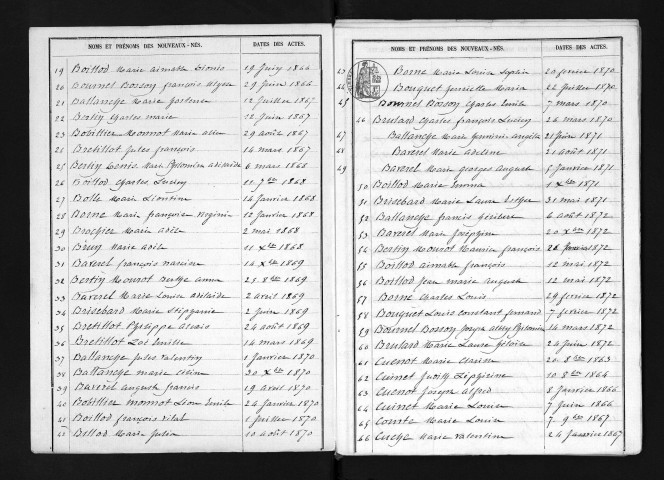 NOMS ET PRÉNOMS DES NOUVEAUX-NÉS. DATES DES ACTES.
19 Boillod Marie aimable Léonie 19 Juin 1866
20 Bournet Bosson françois Ulysse 29 Juin 1866
21 Ballanche Marie 12 Juillet 1867
22 Charles marie 12 Juin 1867
23 Bobillier Monnot Marie 29 août 1867
24 Bretillot Jules françois 14 mars 1867
25 Bertin Marie Philomène adélaïde 6 mars 1868
26 Boillod Charles Lucien 11 7bre 1868
27 Bolle Marie Léontine 14 Janvier 1868
28 Borne Marie françoise Virginie 12 Janvier 1868
29 Marie adèle 2 mai 1868
30 Marie adèle 11 Xbre 1868
31 Baverel françois narcisse 14 Xbre 1869
32 Bertin Mourot Berthe anna 25 8bre 1869
33 Baverel Marie Louise adélaïde 2 avril 1869
34 Brisebard Marie Stéphanie 2 Juin 1869
35 Bretillot Philippe alexis 24 août 1869
36 Bretillot Zoé Emilie 14 mars 1869
37 Ballanche Jules Valentin 1 Janvier 1870
38 Ballanche marie 30 Xbre 1870
39 Baverel auguste francis 19 avril 1870
40 Bobillier monnot Léon Emile 24 Janvier 1870
41 Boillod françois Vital 1 Juillet 1870
42 Billod Marie Julia 10 août 1870
NOMS ET PRÉNOMS DES NOUVEAUX-NÉS. DATES DES ACTES.
43 Borne Marie Louise 20 février 1870
44 Bouquet Henriette Maria 22 Juillet 1870
45 Bournet Bosson Charles Emile 7 mars 1870
46 Brulard Charles françois Lucien 26 mars 1870
47 Ballanche Marie angèle 21 Juin 1871
48 Baverel Marie adeline 21 août 1871
49 Baverel Marie georges Auguste 5 Janvier 1871
50 Boillod Marie Emma 1 Xbre 1871
51 Brisebard Marie Laure 31 mai 1871
52 Ballanche francis 6 août 1872
53 Baverel Marie Joséphine 20 Xbre 1872
54 Bertin Mourot Maurice françois 1872
55 Boillod aimable françois 12 mai 1872
56 Boillod Jean marie Auguste 12 mai 1872
57 Borne Charles Louis 29 février 1872
58 Bouquet Louis Constant fernand 7 février 1872
59 Bournet Bosson Joseph 14 mars 1872
60 Brulard Marie Laure 24 Juin 1872
61 Cuenot Marie 20 8bre 1863
62 Cuinet Zéphirine 10 8bre 1864
63 Cuenot Joseph alfred 8 Janvier 1866
64 Cuinet Marie Louise 7 Juin 1866
65 Comte Marie Louise 7 9bre 1867
66 Marie Valentine 24 Janvier 1867